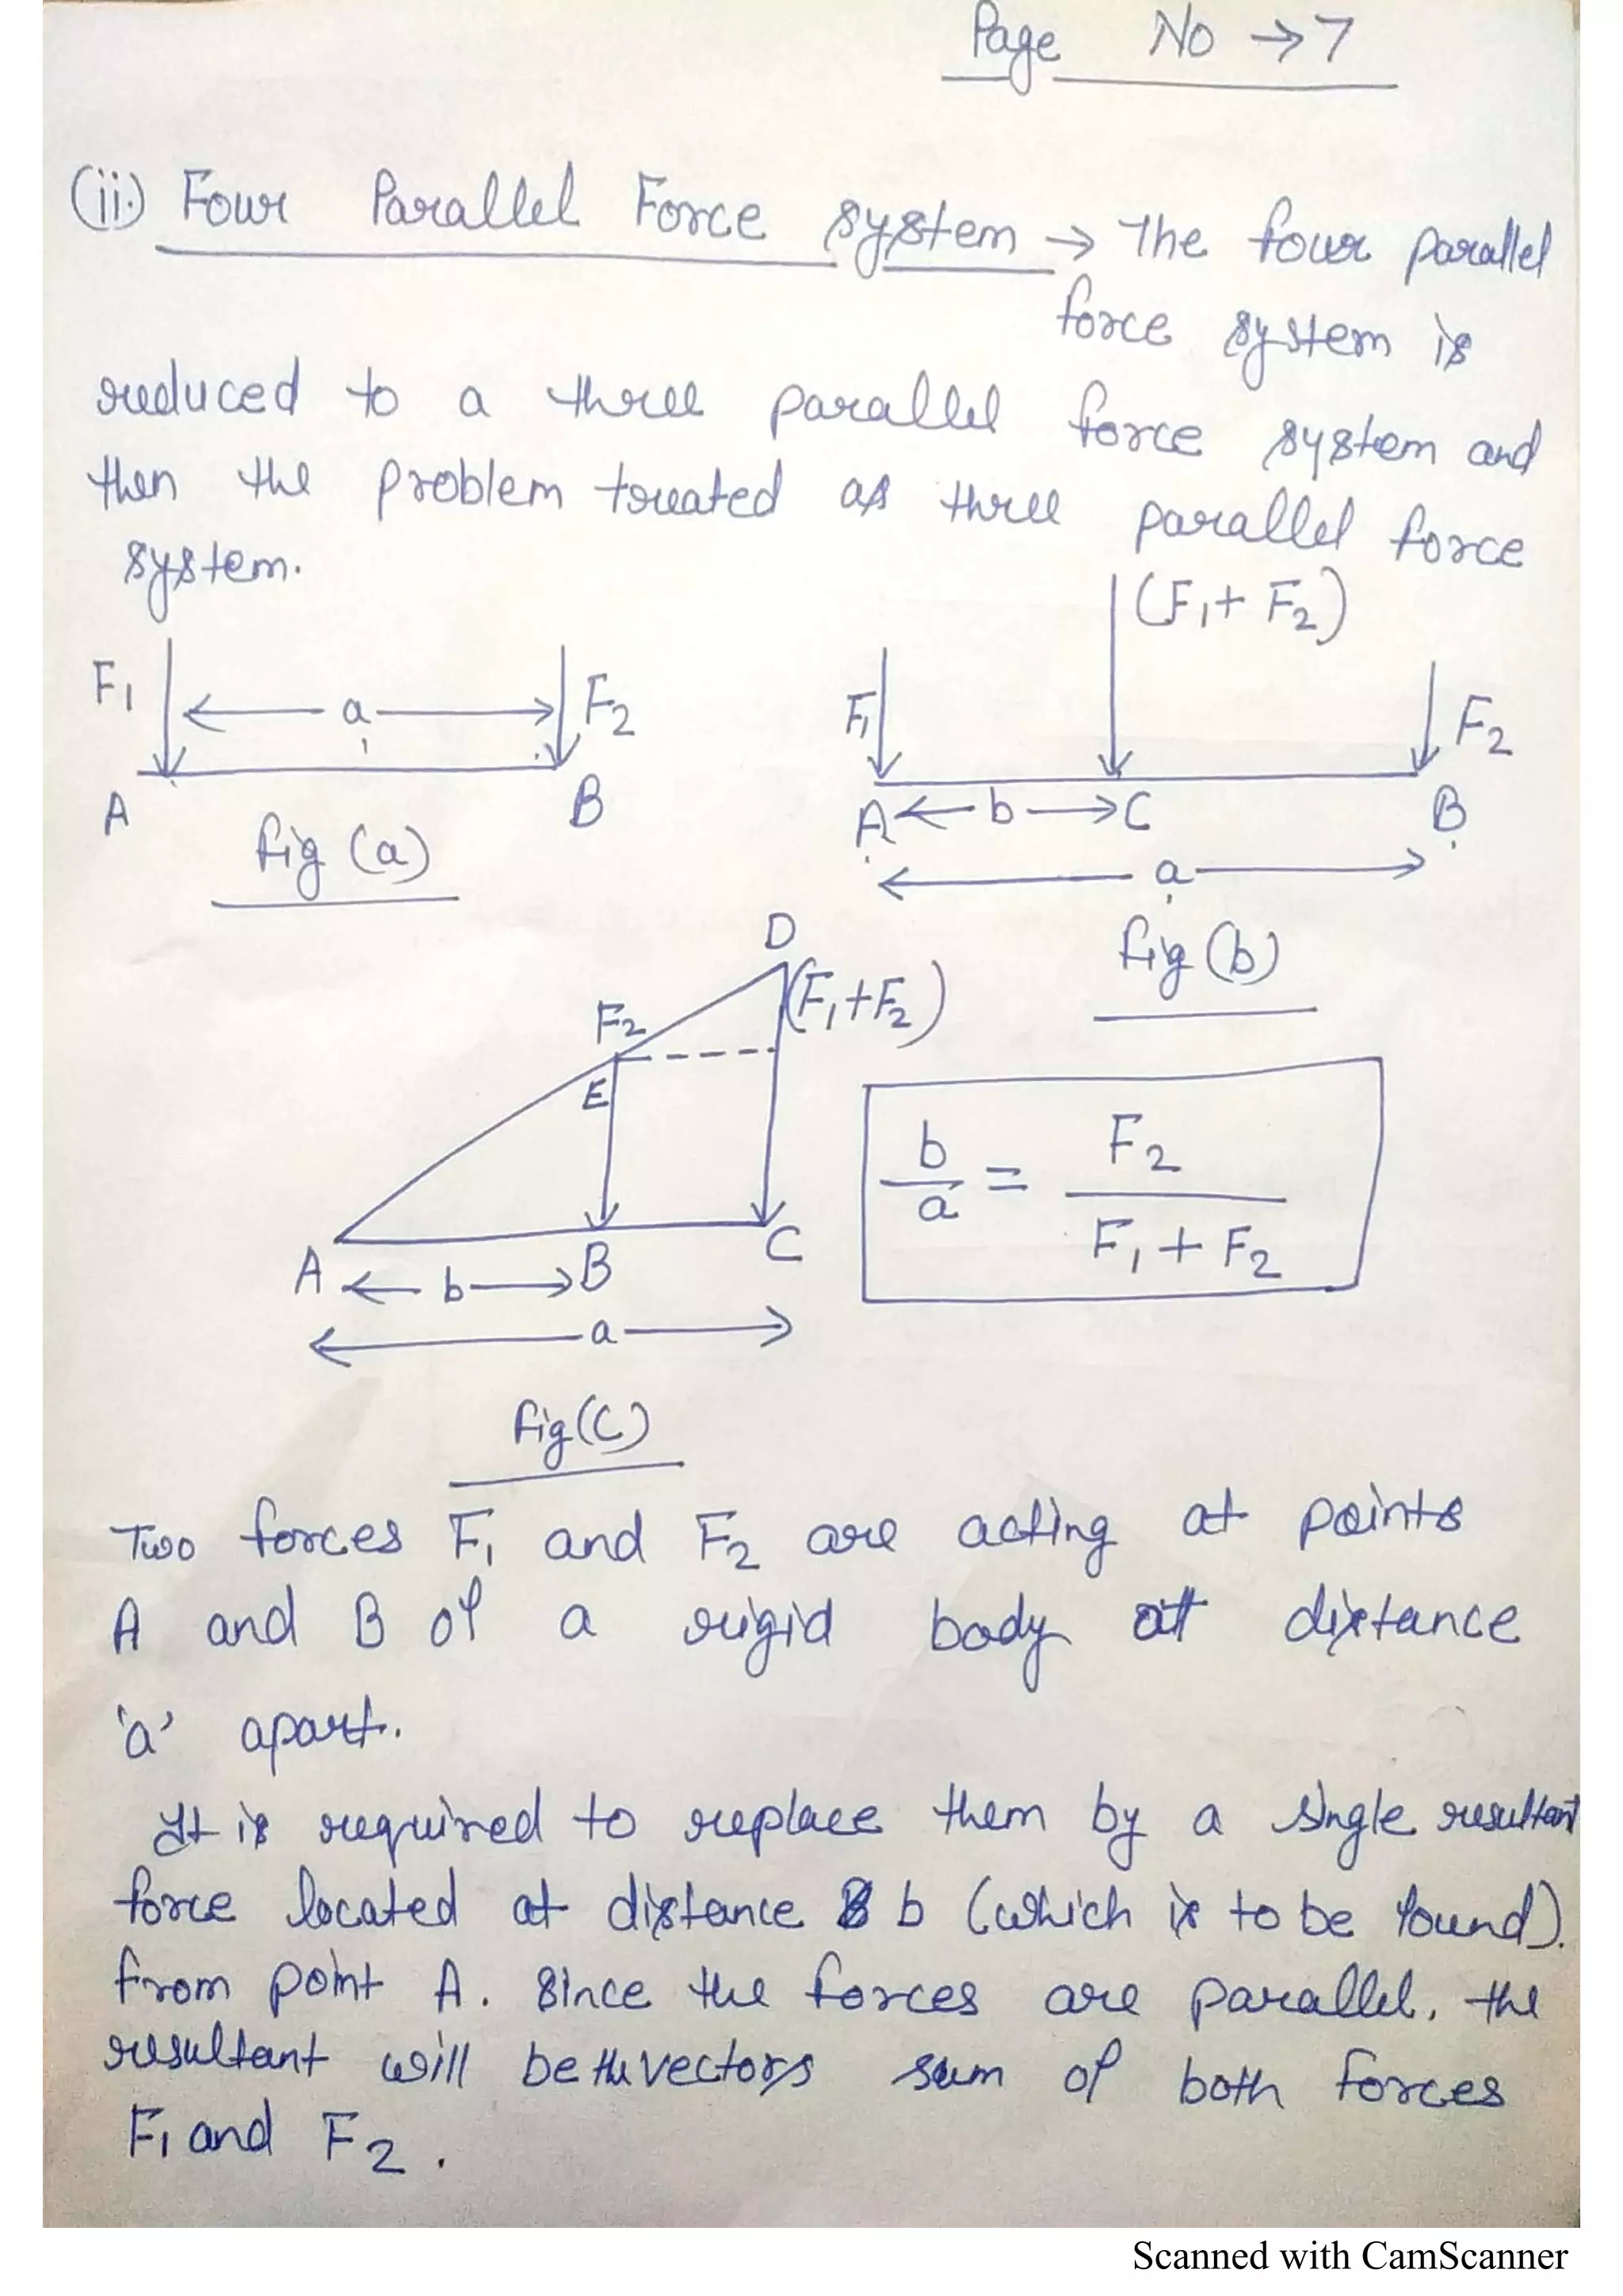 Page No → 7
(ii) Four Parallel Force system → The four parallel
force system is
reduced to a three parallel force system and
then the problem treated as three parallel force
system.
F1 a F2
A B
fig (a)
(F1 + F2)
F1 F2
A b C B
a
fig (b)
D
F2 (F1+F2)
E
A b B C
a
b/a = F2/F1 + F2
fig (C)
Two forces F1 and F2 are acting at points
A and B of a rigid body at distance
'a' apart.
It is required to replace them by a single resultant
force located at distance b (which is to be found).
from point A. Since the forces are parallel, the
resultant will be the vectors sum of both forces
F1 and F2.
Scanned with CamScanner